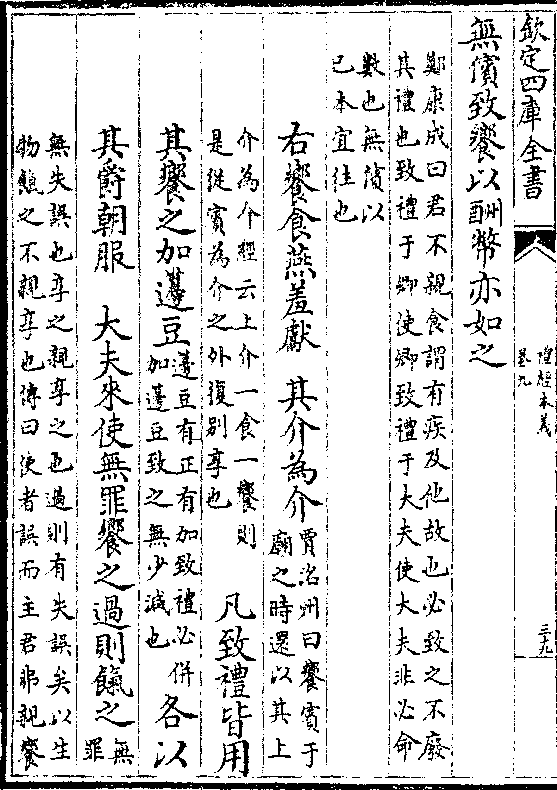 欽定四庫全書
禮經本義
卷九
無儐致饗以酬幣亦如之
鄭康成曰君不親食謂有疾及他故也必致之不廢
其禮也致禮于卿使卿致禮于大夫使大夫非必命
數也無儐以
己本宜往也
右饗食燕羞獻　其介為介
賈洛州曰饗賓于
廟之時還以其上
介為介經云上介一食一饗則
是從賓為介之外復别享也
凡致禮皆用
其饗之加籩豆
籩豆有正有加致禮必併
加籩豆致之無少減也
各以
其爵朝服　大夫來使無罪饗之過則餼之
無
罪
無失誤也享之親享之也過則有失誤矣以生
物餼之不親享也傳曰使者誤而主君弗親饗